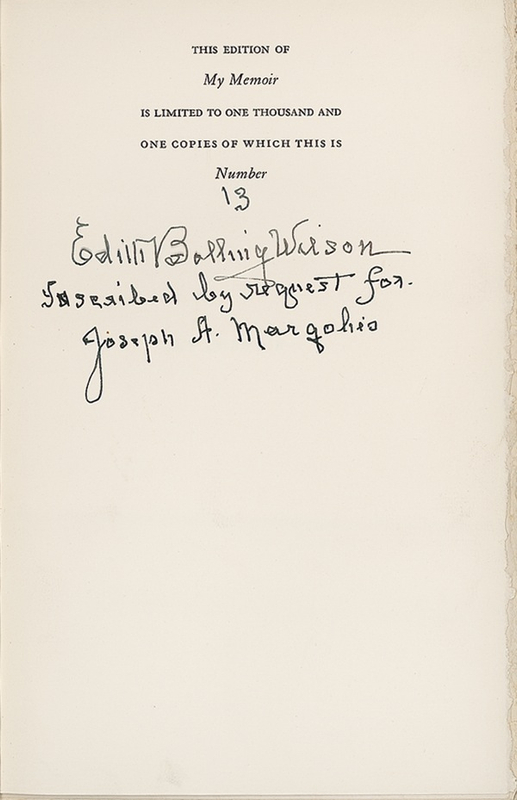 THIS EDITION OF
My Memoir
IS LIMITED TO ONE THOUSAND AND
ONE COPIES OF WHICH THIS IS
Number
13
Edith Bolling Wilson
Inscribed by request for.
Joseph A. Margolis